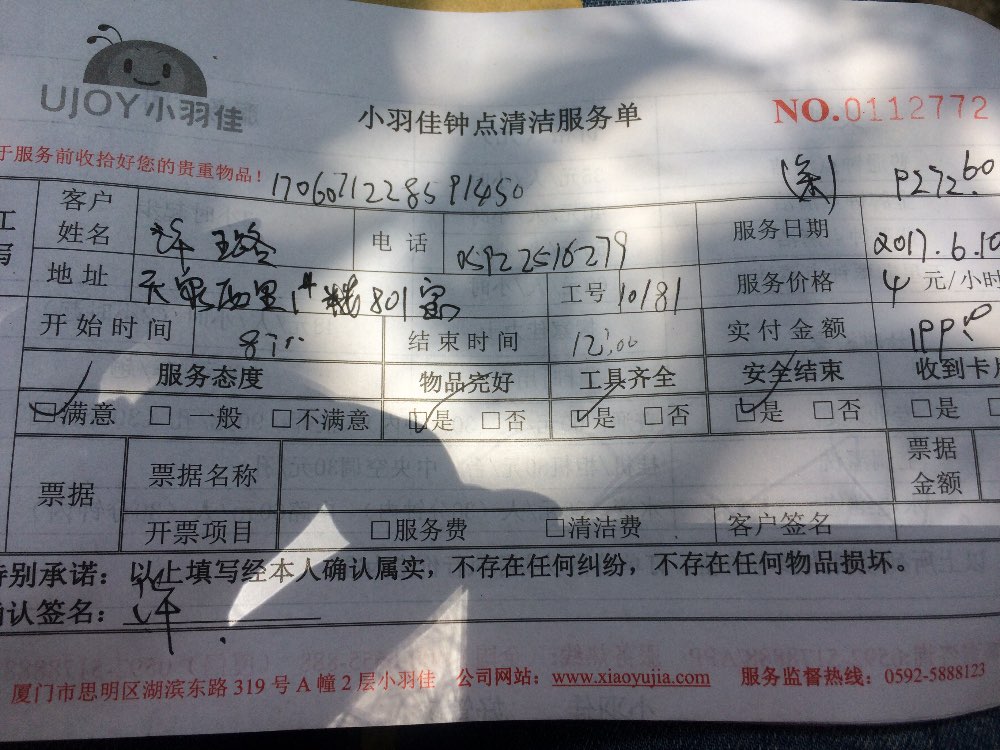 UJOY小羽佳
小羽佳钟点清洁服务单 NO.0112772
于服务前收拾好您的贵重物品！ 1706071228591450
客户姓名 电话 05922516279 服务日期 2017.6.10
地址 天泉西里 801室 工号 10181 服务价格 4 元/小时
开始时间 结束时间 12:00 实付金额
服务态度 物品完好 工具齐全 安全结束 收到卡
☑满意 □一般 □不满意 ☑是 □否 ☑是 □否 ☑是 □否 □是
票据 票据名称 票据金额
开票项目 □服务费 □清洁费 客户签名
特别承诺：以上填写经本人确认属实，不存在任何纠纷，不存在任何物品损坏。
确认签名： 许
厦门市思明区湖滨东路 319 号 A 幢 2 层小羽佳 公司网站：www.xiaoyujia.com 服务监督热线：0592-5888123